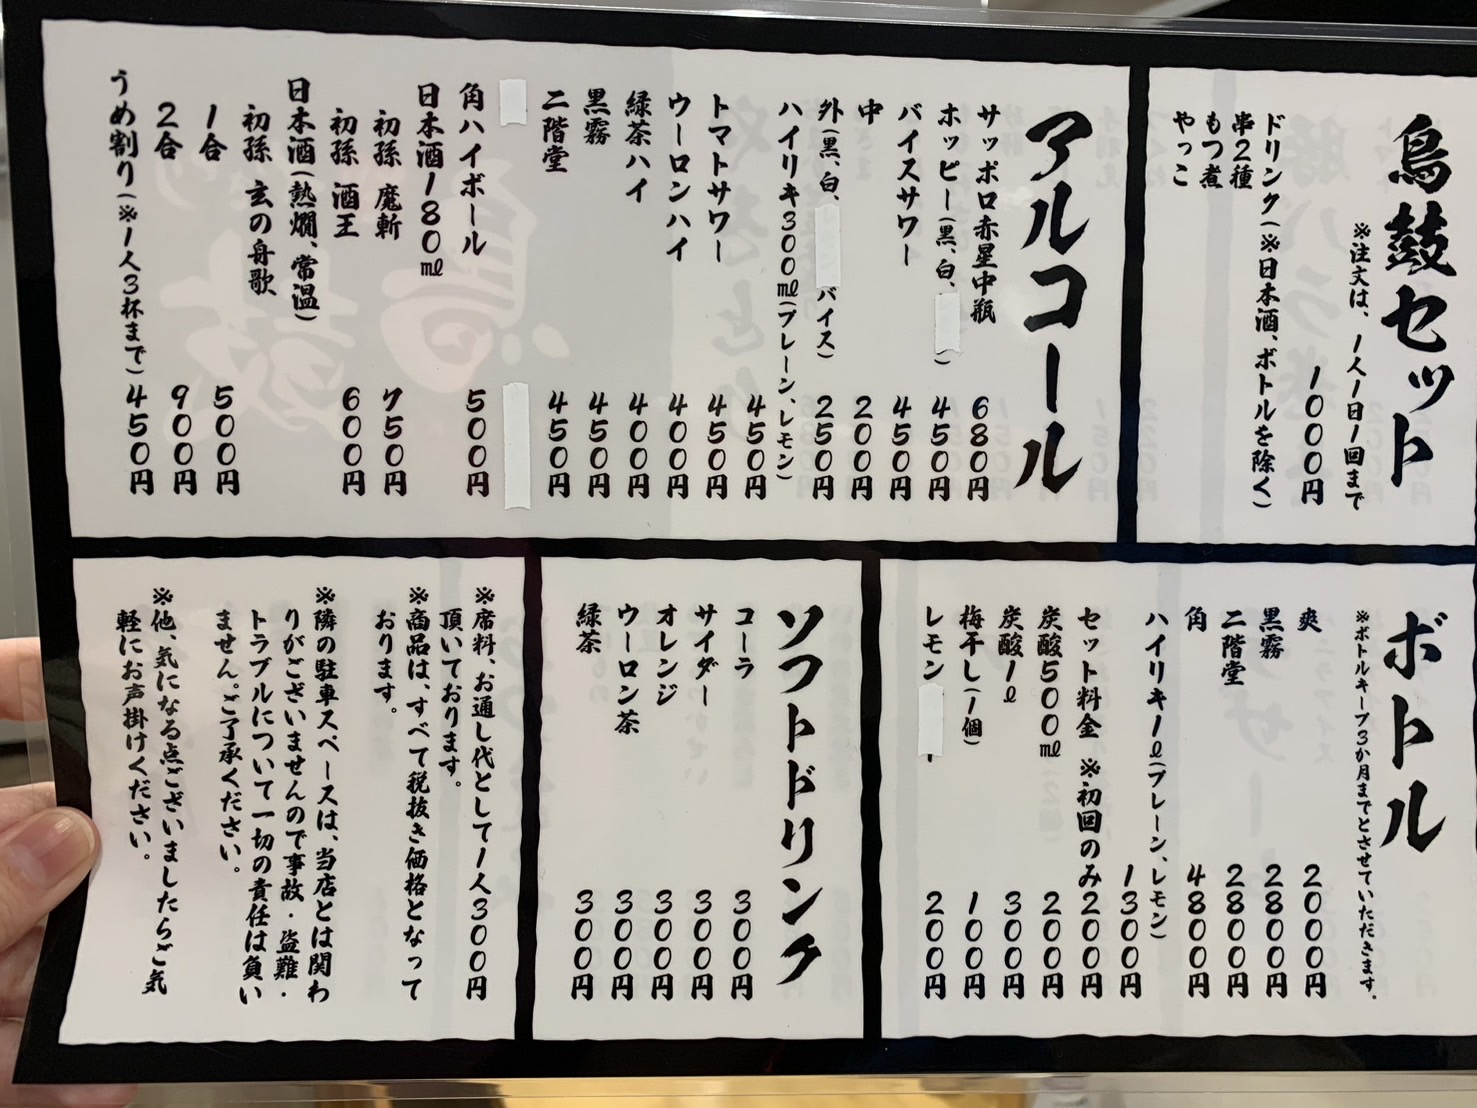 鳥鼓セット
※注文は、1人1日1回まで
1000円
ドリンク(※日本酒、ボトルを除く)
串2種
もつ煮
やっこ
アルコール
サッポロ赤星中瓶 680円
ホッピー(黒、白、) 450円
バイスサワー 450円
中 200円
外(黒、白、バイス) 250円
ハイリキ300㎖(プレーン、レモン) 450円
トマトサワー 450円
ウーロンハイ 400円
緑茶ハイ 400円
黒霧 450円
二階堂 450円
角ハイボール 500円
日本酒180㎖
初孫 魔斬 750円
初孫 酒王 600円
日本酒(熱燗、常温)
初孫 玄の舟歌
1合 500円
2合 900円
うめ割り(※1人3杯まで) 450円
ボトル
※ボトルキープ3か月までとさせていただきます。
爽 2000円
黒霧 2800円
二階堂 2800円
角 4800円
ハイリキ1ℓ(プレーン、レモン) 1300円
セット料金 ※初回のみ 200円
炭酸500㎖ 200円
炭酸1ℓ 300円
梅干し(1個) 100円
レモン 200円
ソフトドリンク
コーラ 300円
サイダー 300円
オレンジ 300円
ウーロン茶 300円
緑茶 300円
※席料、お通し代として1人300円
頂いております。
※商品は、すべて税抜き価格となって
おります。
※隣の駐車スペースは、当店とは関わ
りがございませんので事故・盗難・
トラブルについて一切の責任は負い
ません。ご了承ください。
※他、気になる点ございましたらご気
軽にお声掛けください。